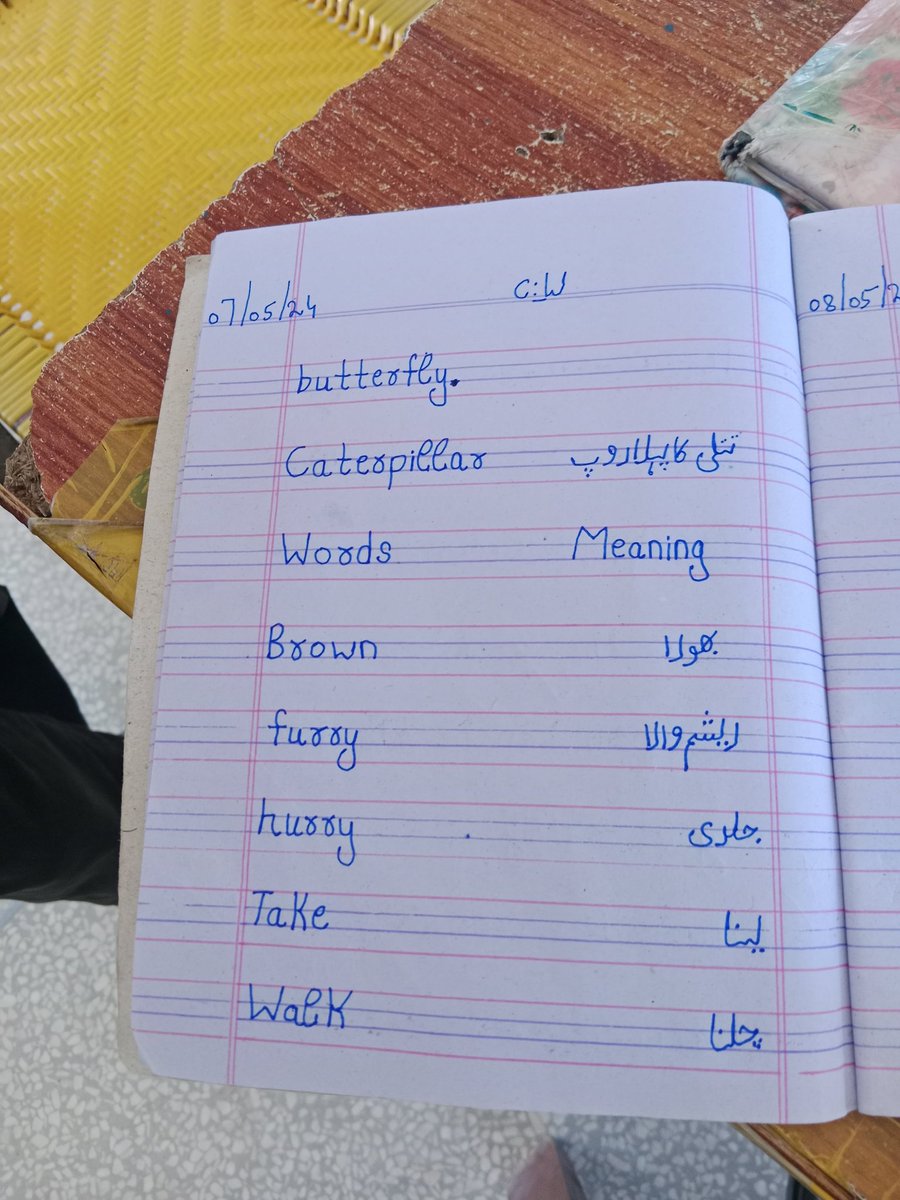 07/05/24 C:W
butterfly.
Caterpillar تتلی کا پہلا روپ
Words Meaning
Brown بھولا
furry ریشم والا
hurry جلدی
Take لینا
Walk چلنا
08/05/2